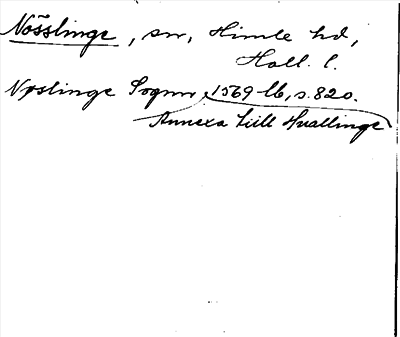 Nösslinge, sn, Himle hd,
Hall. l.
Nøslinge Sognn 1569 lb, s. 820.
Annexa till Huallinge